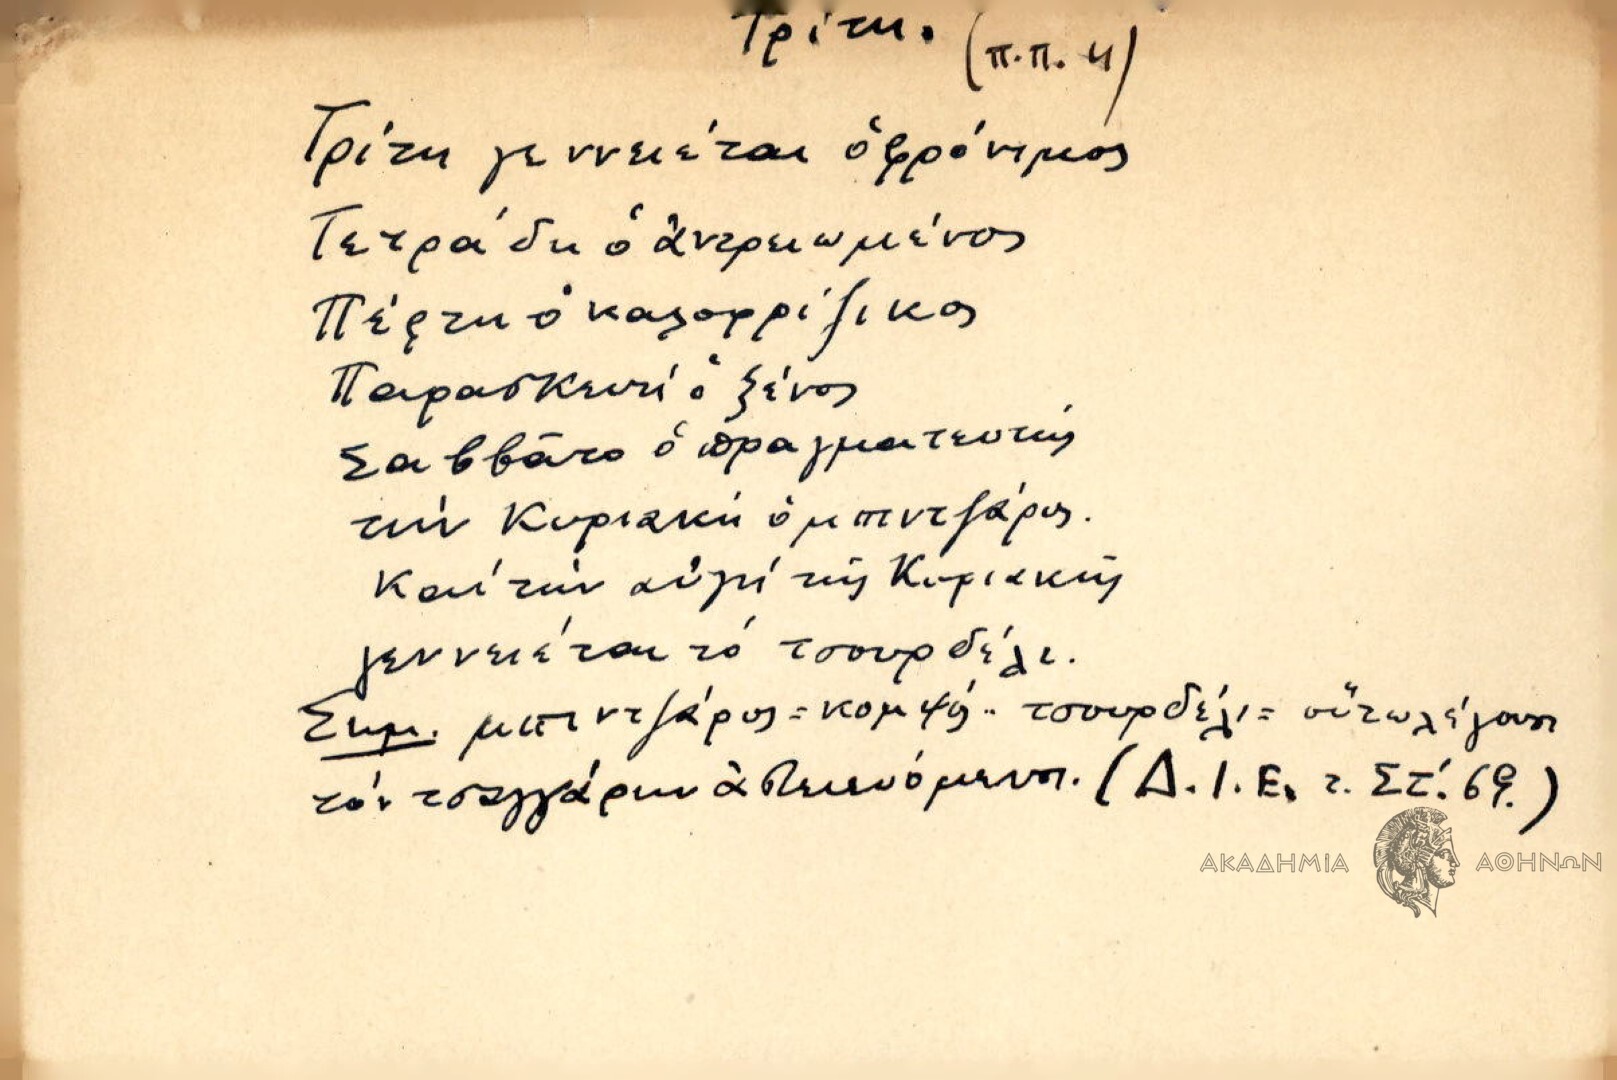 Τρίτη. (π.π. 4)
Τρίτη γεννειέται ὁ φρόνιμος
Τετράδη ὁ ἀντρειωμένος
Πέφτη ὁ καλορρίζικος
Παρασκευή ὁ ξένος
Σαββᾶτο ὁ πραγματευτής
τήν Κυριακή ὁ μπιντζάρος.
Καί τήν αὐγή τῆς Κυριακῆς
γεννειέται τό τσουρδέλι.
Σημ. μπιντζάρος = κομψός· τσουρδέλι = οὕτω λέγουσι
τόν τσαγγάρην ἀστειευόμενοι. (Δ.Ι.Ε. τ. Στ΄. 69.)
ΑΚΑΔΗΜΙΑ ΑΘΗΝΩΝ